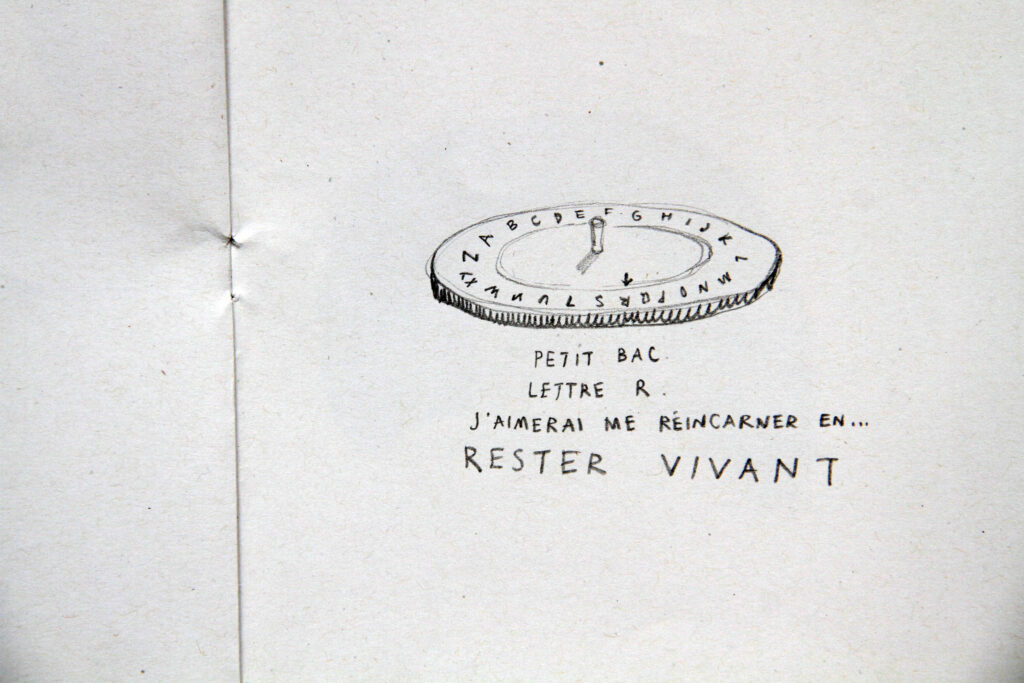 A B C D E F G H I J K L M N O P Q R S T U V W X Y Z
PETIT BAC.
LETTRE R.
J'AIMERAI ME RÉINCARNER EN...
RESTER VIVANT